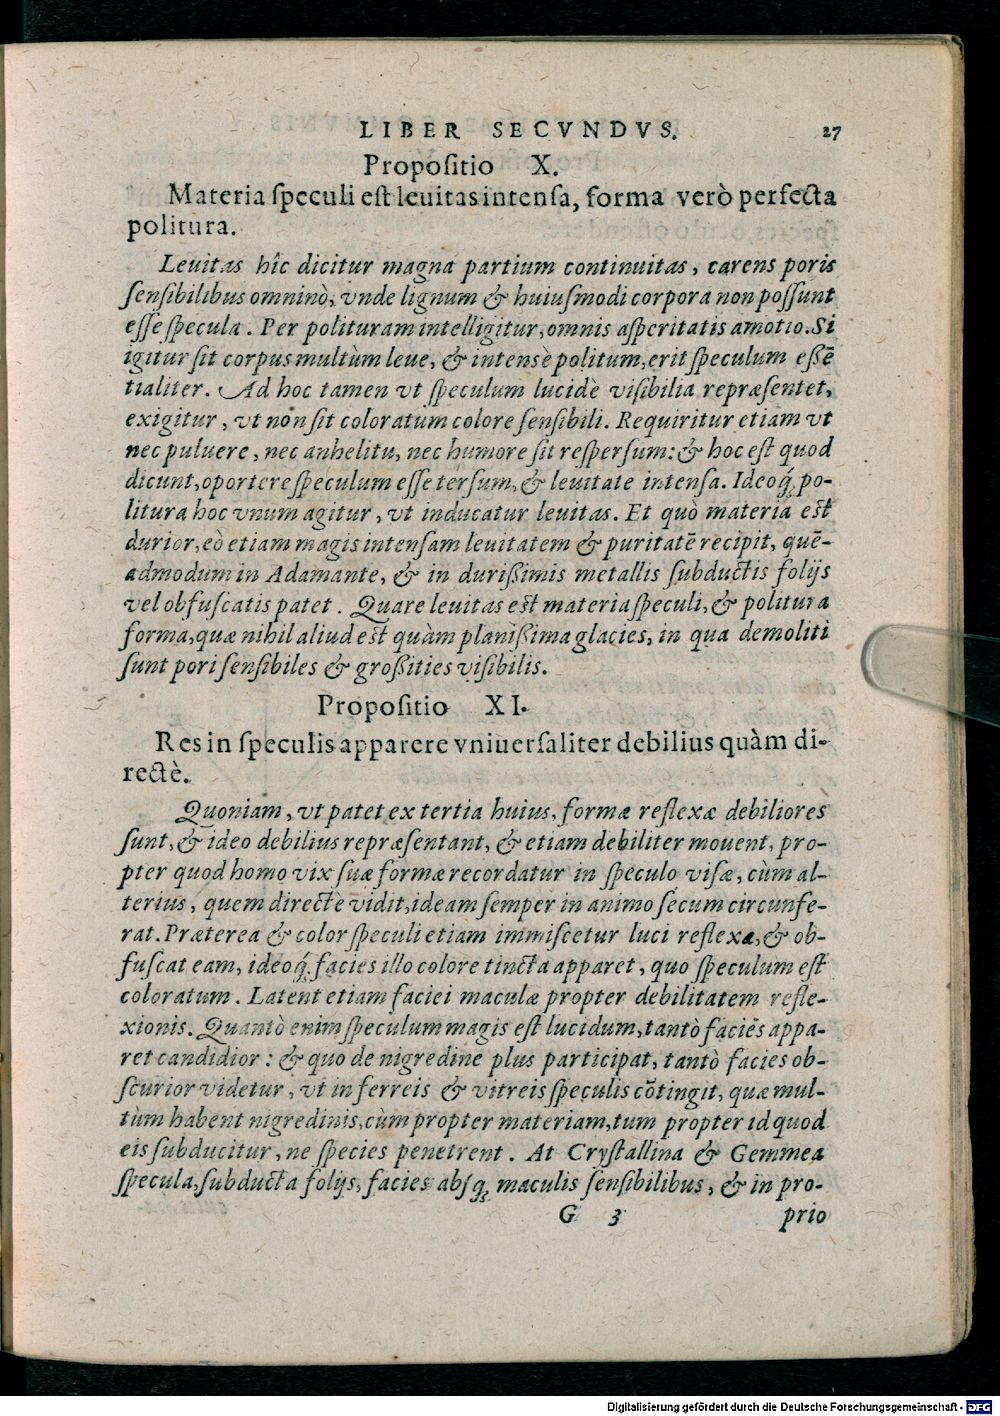 LIBER SECVNDVS. 27
Propoſitio X.
Materia ſpeculi eſt leuitas intenſa, forma verò perfecta
politura.
Leuitas hîc dicitur magna partium continuitas, carens poris
ſenſibilibus omninò, vnde lignum & huiuſmodi corpora non poſſunt
eſſe ſpecula. Per polituram intelligitur, omnis aſperitatis amotio. Si
igitur ſit corpus multùm leue, & intensè politum, erit ſpeculum eßē
tialiter. Ad hoc tamen vt ſpeculum lucidè viſibilia repræſentet,
exigitur, vt non ſit coloratum colore ſenſibili. Requiritur etiam vt
nec puluere, nec anhelitu, nec humore ſit reſperſum: & hoc eſt quod
dicunt, oportere ſpeculum eſſe terſum, & leuitate intenſa. Ideoq́; po-
litura hoc vnum agitur, vt inducatur leuitas. Et quò materia eſt
durior, eò etiam magis intenſam leuitatem & puritatē recipit, quē-
admodum in Adamante, & in durißimis metallis ſubductis folijs
vel obfuſcatis patet. Quare leuitas eſt materia ſpeculi, & politura
forma, quæ nihil aliud eſt quàm planißima glacies, in qua demoliti
ſunt pori ſenſibiles & großities viſibilis.
Propoſitio XI.
Res in ſpeculis apparere vniuerſaliter debilius quàm di-
rectè.
Quoniam, vt patet ex tertia huius, formæ reflexæ debiliores
ſunt, & ideo debilius repræſentant, & etiam debiliter mouent, pro-
pter quod homo vix ſuæ formæ recordatur in ſpeculo viſæ, cùm al-
terius, quem directè vidit, ideam ſemper in animo ſecum circunfe-
rat. Præterea & color ſpeculi etiam immiſcetur luci reflexæ, & ob-
fuſcat eam, ideoq́; facies illo colore tincta apparet, quo ſpeculum eſt
coloratum. Latent etiam faciei maculæ propter debilitatem refle-
xionis. Quantò enim ſpeculum magis eſt lucidum, tantò facies appa-
ret candidior: & quo de nigredine plus participat, tantò facies ob-
ſcurior videtur, vt in ferreis & vitreis ſpeculis cōtingit, quæ mul-
tùm habent nigredinis, cùm propter materiam, tum propter id quod
eis ſubducitur, ne ſpecies penetrent. At Cryſtallina & Gemmea
ſpecula, ſubducta folijs, facies abſq; maculis ſenſibilibus, & in pro-
G 3 prio
Digitalisierung gefördert durch die Deutsche Forschungsgemeinschaft - DFG